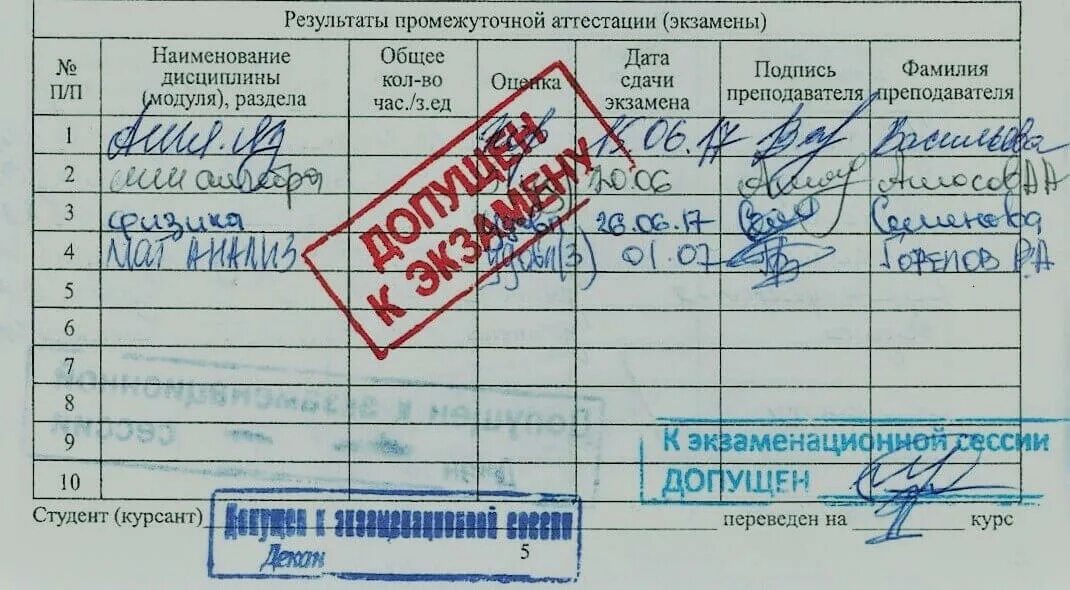 Результаты промежуточной аттестации (экзамены)
№ П/П Наименование дисциплины (модуля), раздела Общее кол-во час./з.ед Оценка Дата сдачи экзамена Подпись преподавателя Фамилия преподавателя
1 15.06.17 Васильева
2 лин алгебра 20.06 Амосов АА
3 физика 26.06.17 Семенова
4 МАТ АНАЛИЗ удовл(3) 01.07 Горелов В.А
5
6
7
8
9
10
ДОПУЩЕН
К ЭКЗАМЕНУ
К экзаменационной сессии
ДОПУЩЕН
Студент (курсант) переведен на II курс
Допущен к экзаменационной сессии
Декан
5